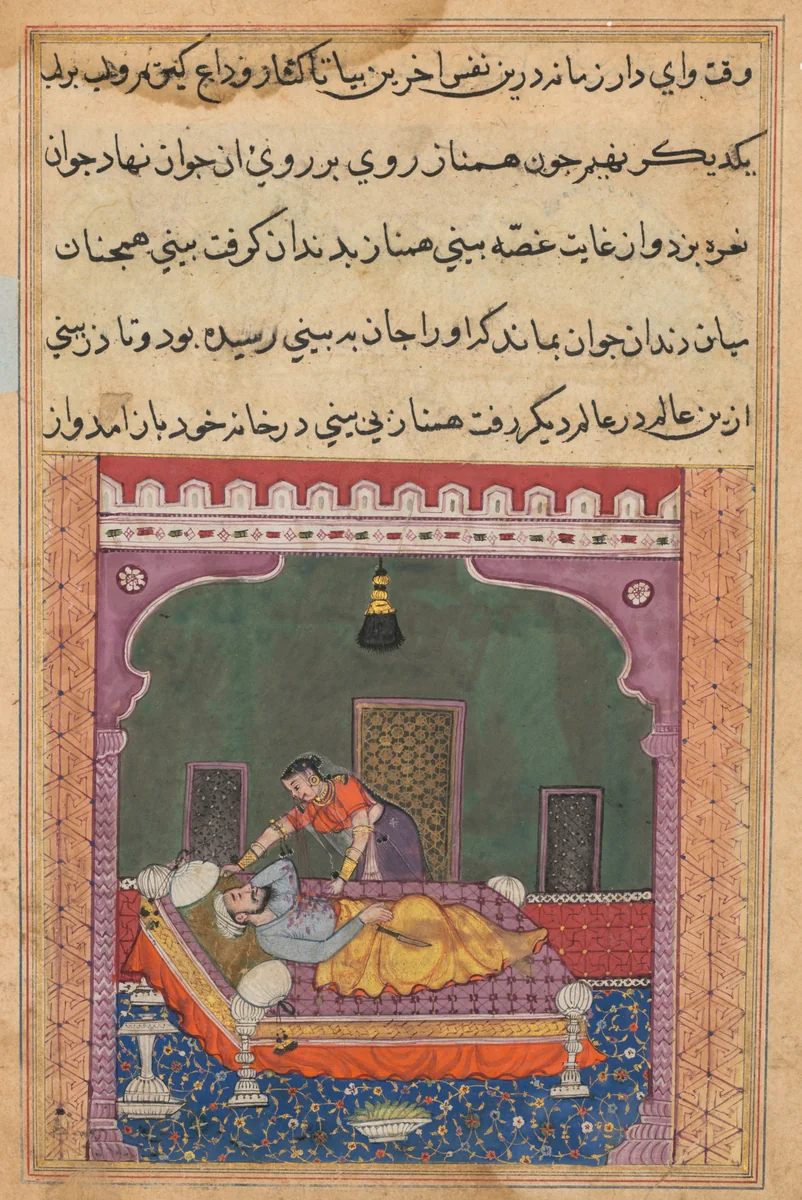 وقت واي دار زمانه درين نفس اخرين بيا تا كنار و داع كنيم و لب بر لب
يكديكر نهيم جون همناز روي بر روئ ان جوان نهاد جوان
نعره بزد و از غايت غصّه بيني همناز بدندان كرفت بيني همجنان
ميان دندان جوان بماند كه او را جان به بيني رسيده بود و تا در بيني
ازين عالم در عالم ديكر رفت همناز بي بيني در خانه خود باز امد و از